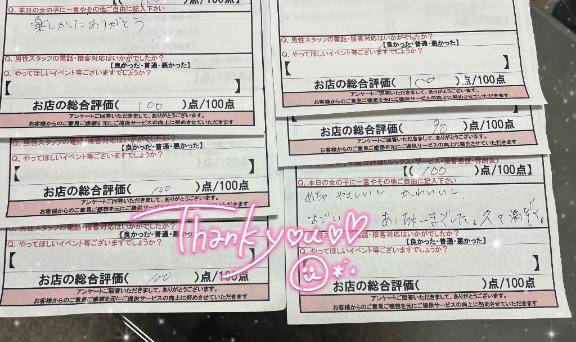 Q. 本日の女の子に一言やその他ご自由に記入下さい
楽しかったありがとう
Q. 男性スタッフの電話・接客対応はいかがでしたか?
【良かった・普通・悪かった】
Q. やってほしいイベント等ございますでしょうか?
【 】
お店の総合評価( 100 )点/100点
アンケートにご回答いただきまして、ありがとうございます。
お客様からのご意見ご感想を元にご提供サービスの向上に努めさせていただきます
Q. 男性スタッフの電話・接客対応はいかがでしたか?
【良かった・普通・悪かった】
Q. やってほしいイベント等ございますでしょうか?
【 】
お店の総合評価( 100 )点/100点
アンケートにご回答いただきまして、ありがとうございます。
【良かった・普通・悪かった】
Q. やってほしいイベント等ございますでしょうか?
【 】
お店の総合評価( 100 )点/100点
アンケートにご回答いただきまして、ありがとうございます。
お客様からのご意見ご感想を元にご提供サービスの向上に努めさせていただきます
Q. 男性スタッフの電話・接客対応はいかがでしたか?
【良かった・普通・悪かった】
Q. やってほしいイベント等ございますでしょうか?
【 】
お店の総合評価( 100 )点/100点
アンケートにご回答いただきまして、ありがとうございます。
お客様からのご意見ご感想を元にご提供サービスの向上に努めさせていただきます
( 90 )点/100点
アンケートにご回答いただきまして、ありがとうございます。
【( 100 )点/100点】
Q. 本日の女の子に一言やその他ご自由に記入下さい
めちゃ やさしい かわいい
接客対応はいかがでしたか?
【良かった・普通・悪かった】
Q. やってほしいイベント等ございますでしょうか?
【 】
お店の総合評価( )点/100点
アンケートにご回答いただきまして、ありがとうございます。
お客様からのご意見ご感想を元にご提供サービスの向上に努めさせていただきます
Thank you